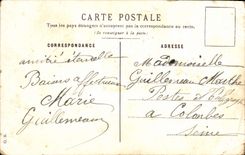 CARTE POSTALE
Tous les pays étrangers n'acceptent pas la correspondance au recto.
(Se renseigner à la poste)
CORRESPONDANCE
amitié éternelle
Baisers affectueux
Marie
Guillemeau
ADRESSE
Mademoiselle
Guillemeau Marthe
Postes et
à Colombes
Seine